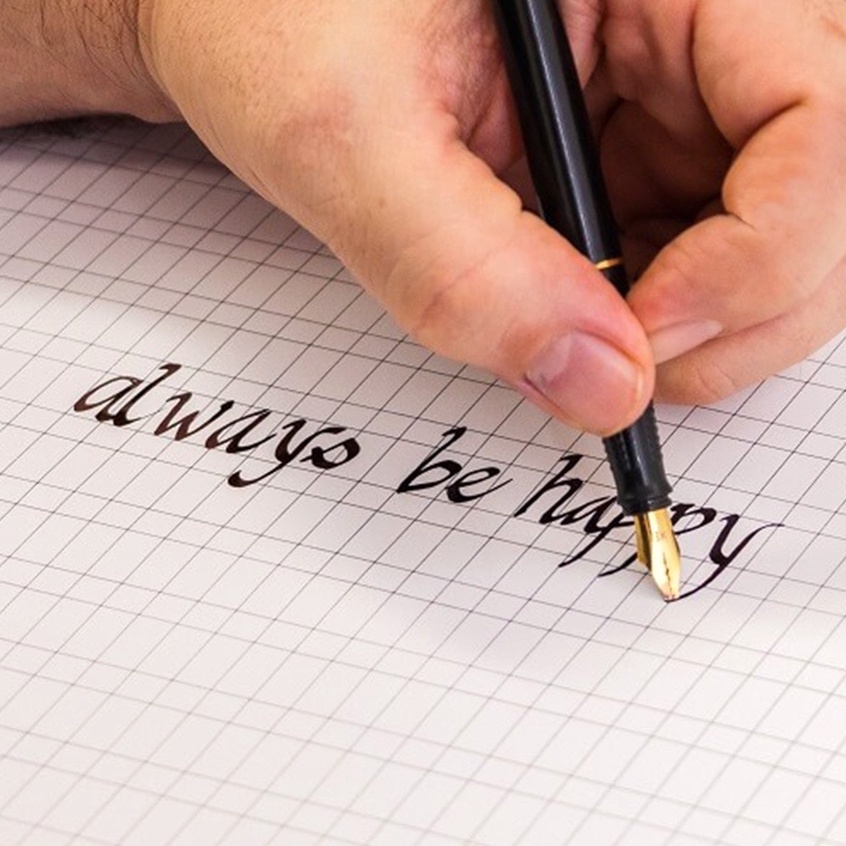 always be happy